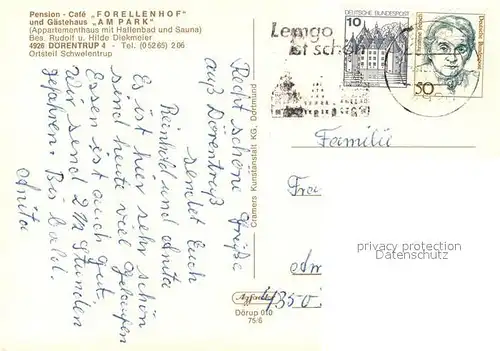 Pension - Café „FORELLENHOF“
und Gästehaus „AM PARK“
(Appartementhaus mit Hallenbad und Sauna)
Bes. Rudolf u. Hilde Diekmeier
4926 DÖRENTRUP 4 - Tel. (0 52 65) 2 06
Ortsteil Schwelentrup
Recht schöne Grüße
aus Dörentrup
sendet Euch
Reinhold und Anita
Es ist hier sehr schön
sind heute viel gelaufen
Essen ist auch gut.
Wir sind 2½ Stunden
gefahren. Bis bald.
Anita
Cramers Kunstanstalt KG, Dortmund
Dörup 010
75/6
Lemgo
ist schön
10
DEUTSCHE BUNDESPOST
50
Deutsche Bundespost
Familie
Frau
Am
4350
privacy protection
Datenschutz